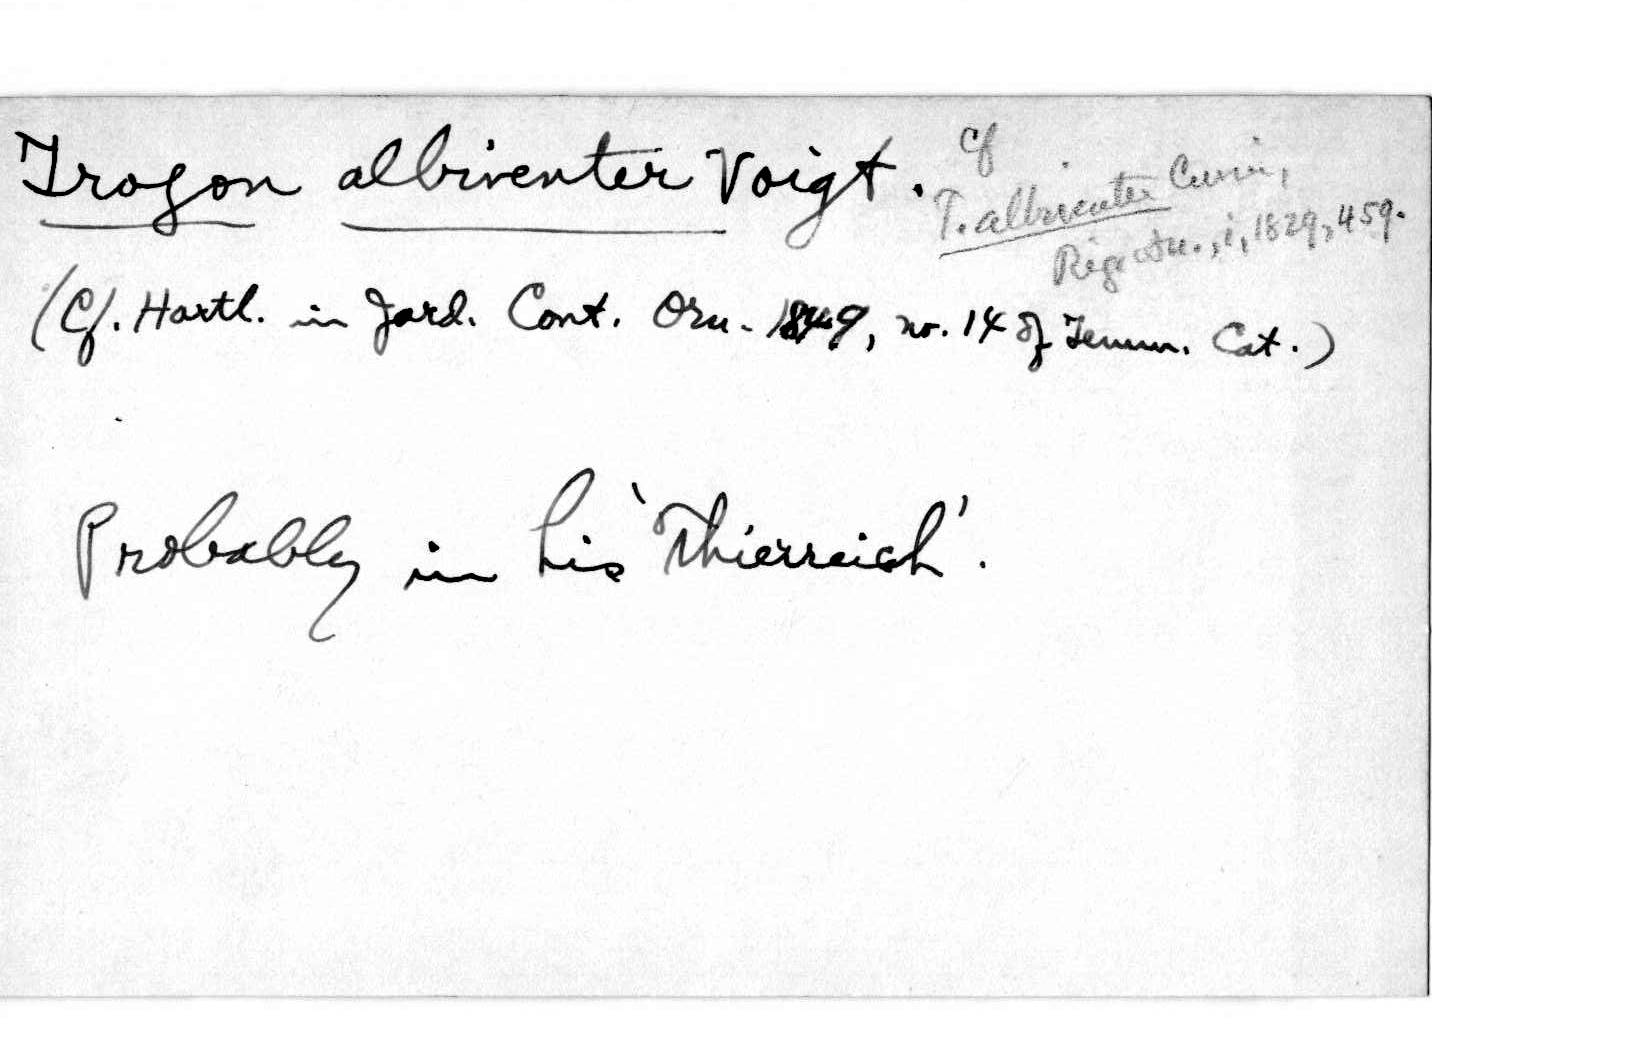 Trogon albiventer Voigt.
Cf
T. albiventer Cuvier,
Règ. An., i, 1829, 459.
(Cf. Hartl. in Jard. Cont. Orn. 1849, no. 14 of Temm. Cat.)
Probably in his 'Thierreich'.